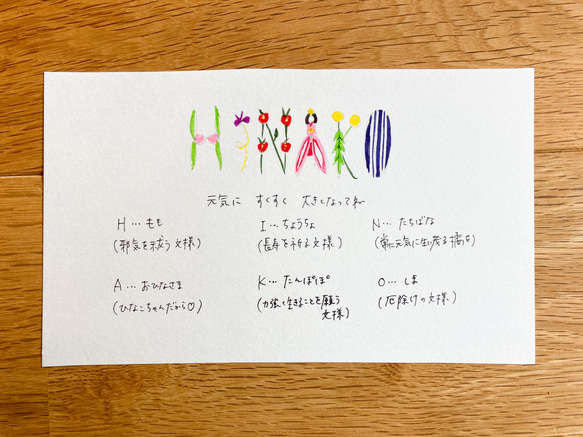 HINAKO
元気に すくすく 大きくなってね
H … もも I … ちょうちょ N … たちばな
(邪気を祓う文様) (長寿を祈る文様) (常に元気に生い茂る橘を)
A … おひなさま K … たんぽぽ O … しま
(ひなこちゃんだから♡) (力強く生きることを願う (厄除けの文様)
文様)